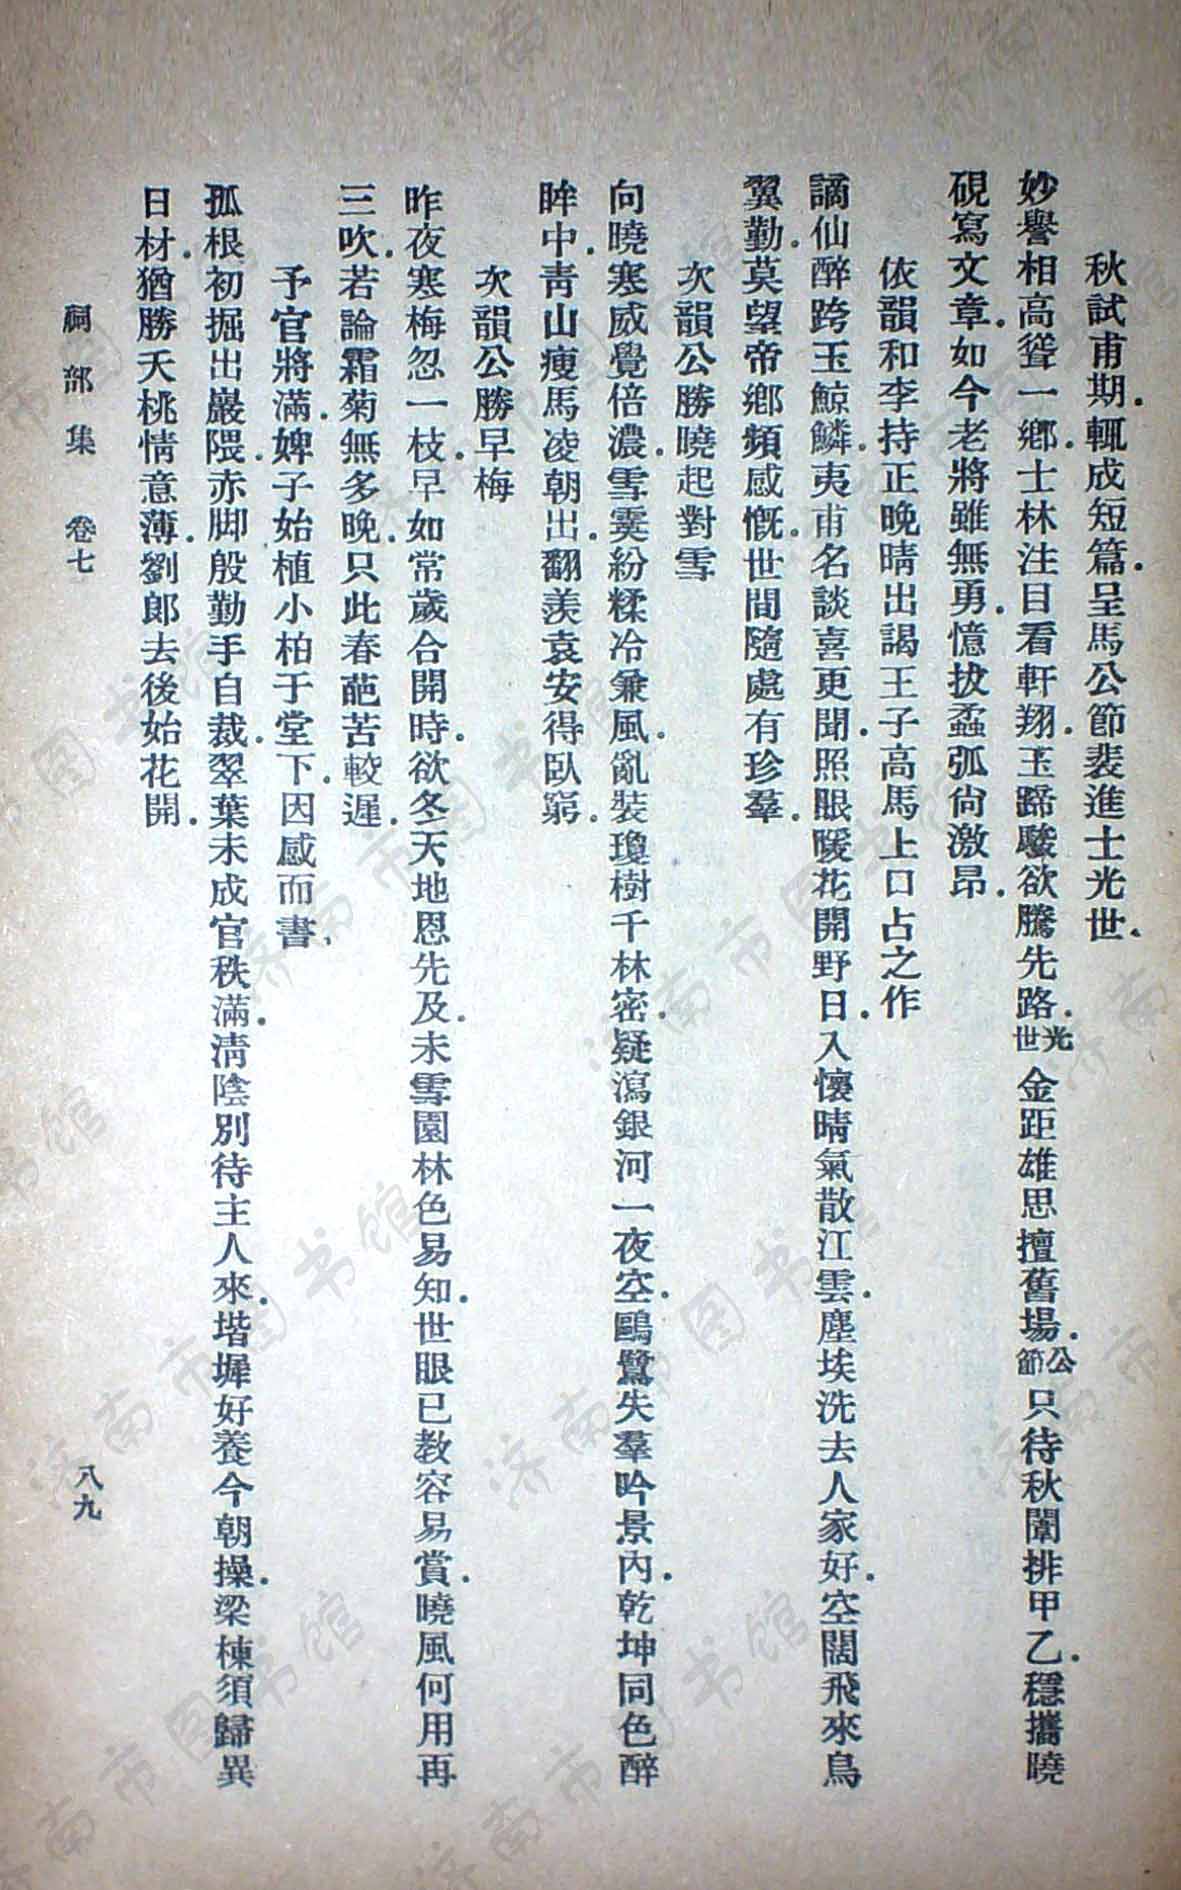 秋試甫期.輒成短篇.呈馬公節裴進士光世.
妙譽相高聳一鄉.士林注目看軒翔.玉蹄駿欲騰先路.光世金距雄思擅舊場.公節只待秋闈排甲乙.穩攜曉
硯寫文章.如今老將雖無勇.憶拔蝥弧尙激昂.
依韻和李持正晚晴出謁王子高馬上口占之作
謫仙醉跨玉鯨鱗.夷甫名談喜更聞.照眼暖花開野日.入懷晴氣散江雲.塵埃洗去人家好.空闊飛來鳥
翼勤.莫望帝鄉頻感慨.世間隨處有珍羣.
次韻公勝曉起對雪
向曉寒威覺倍濃.雪霙紛糅冷兼風.亂裝瓊樹千林密.疑瀉銀河一夜空.鷗鷺失羣吟景內.乾坤同色醉
眸中.靑山瘦馬凌朝出.翻羨袁安得臥窮.
次韻公勝早梅
昨夜寒梅忽一枝.早如常歲合開時.欲冬天地恩先及.未雪園林色易知.世眼已教容易賞.曉風何用再
三吹.若論霜菊無多晚.只此春葩苦較遲.
予官將滿.婢子始植小柏于堂下.因感而書.
孤根初掘出巖隈.赤脚殷勤手自栽.翠葉未成官秩滿.淸陰別待主人來.堦墀好養今朝操.梁棟須歸異
日材.猶勝夭桃情意薄.劉郎去後始花開.
祠部集 卷七 八九
济南市图书馆